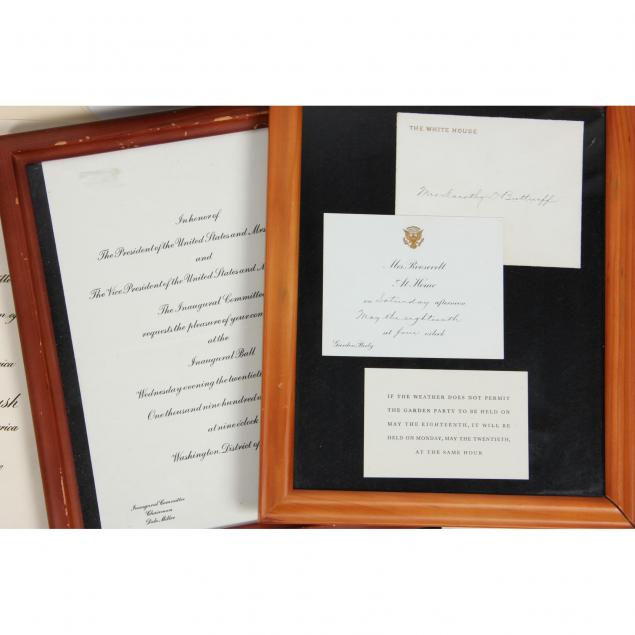 In honor of
The President of the United States and Mrs
and
The Vice President of the United States and
The Inaugural Committee
requests the pleasure of your com
at the
Inaugural Ball
Wednesday evening the twentieth
One thousand nine hundred
at nine o'clock
Washington, District of
Inaugural Committee
Chairman
Dale Miller
THE WHITE HOUSE
Mrs. Dorothy
Mrs. Roosevelt
At Home
on Saturday afternoon
May the eighteenth
at four o'clock
Garden Party
IF THE WEATHER DOES NOT PERMIT
THE GARDEN PARTY TO BE HELD ON
MAY THE EIGHTEENTH, IT WILL BE
HELD ON MONDAY, MAY THE TWENTIETH,
AT THE SAME HOUR